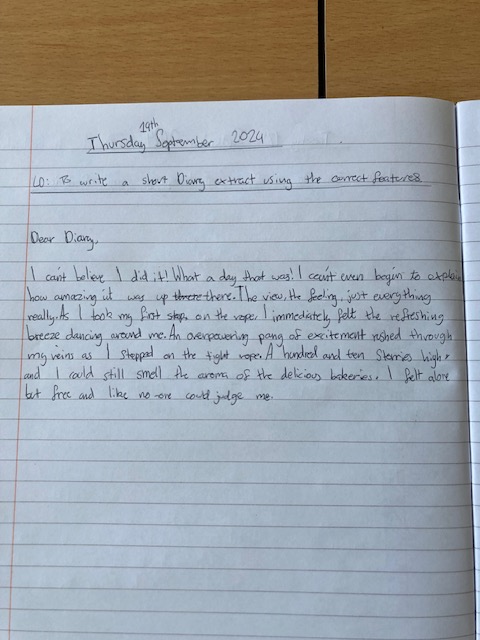 19th
Thursday September 2024
LO: To write a short Diary extract using the correct features
Dear Diary,
I can't believe I did it! What a day that was! I can't even begin to explain
how amazing it was up there there. The view, the feeling, just everything
really. As I took my first step, on the rope, I immediately felt the refreshing
breeze dancing around me. An overpowering pang of excitement rushed through
my veins as I stepped on the tight rope. A hundred and ten storries high,
and I could still smell the aroma of the delicious bakeries. I felt alone
but free and like no-one could judge me.